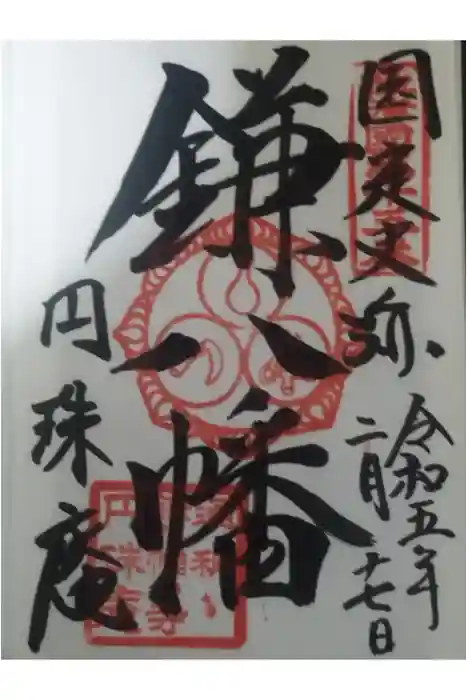 国定史跡
令和五年
二月十七日
鎌八幡
円珠庵
円珠庵